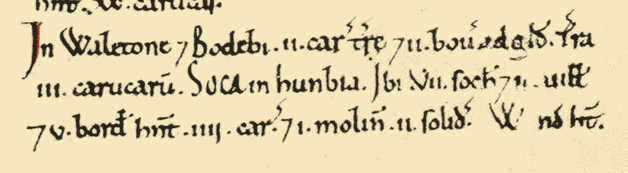 hn̄t. W. carucar̃.
In Waletone ⁊ Bodebi .ii. car̃ tr̃e ⁊ ii. bou᷒ ad gl̃d. Tr̃a
iii. carucarū. Soca in hunbia. Ibi .vii. soch̃ ⁊ ii. uilł
⁊ v. bord̃ hn̄t .iiii. car̃. ⁊ i. molin̄ .ii. solid̃. W nō ht̄.